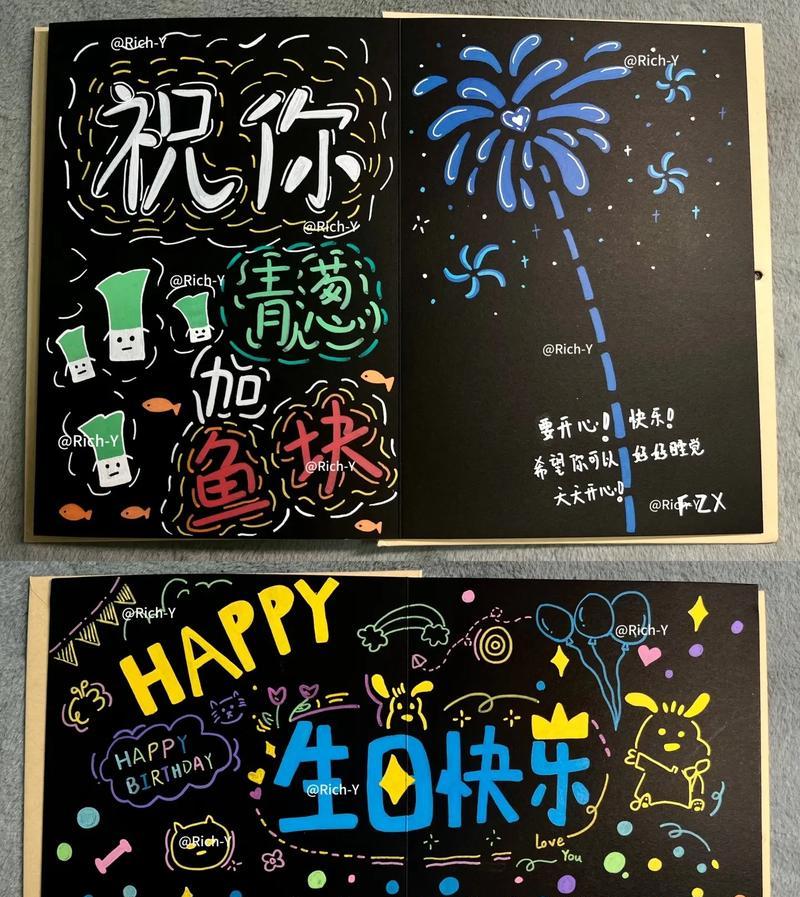 @Rich-Y
祝你
@Rich-Y
@Rich-Y
青葱
加
@Rich-Y
鱼块
@Rich-Y
@Rich-Y
@Rich-Y
要开心! 快乐!
希望你可以 好好睡觉
天天开心!
@Rich-Y
FZX
@Rich-Y
HAPPY
@Rich-Y
HAPPY
BIRTHDAY
生日快乐
@Rich-Y
@Rich-Y
Love
You